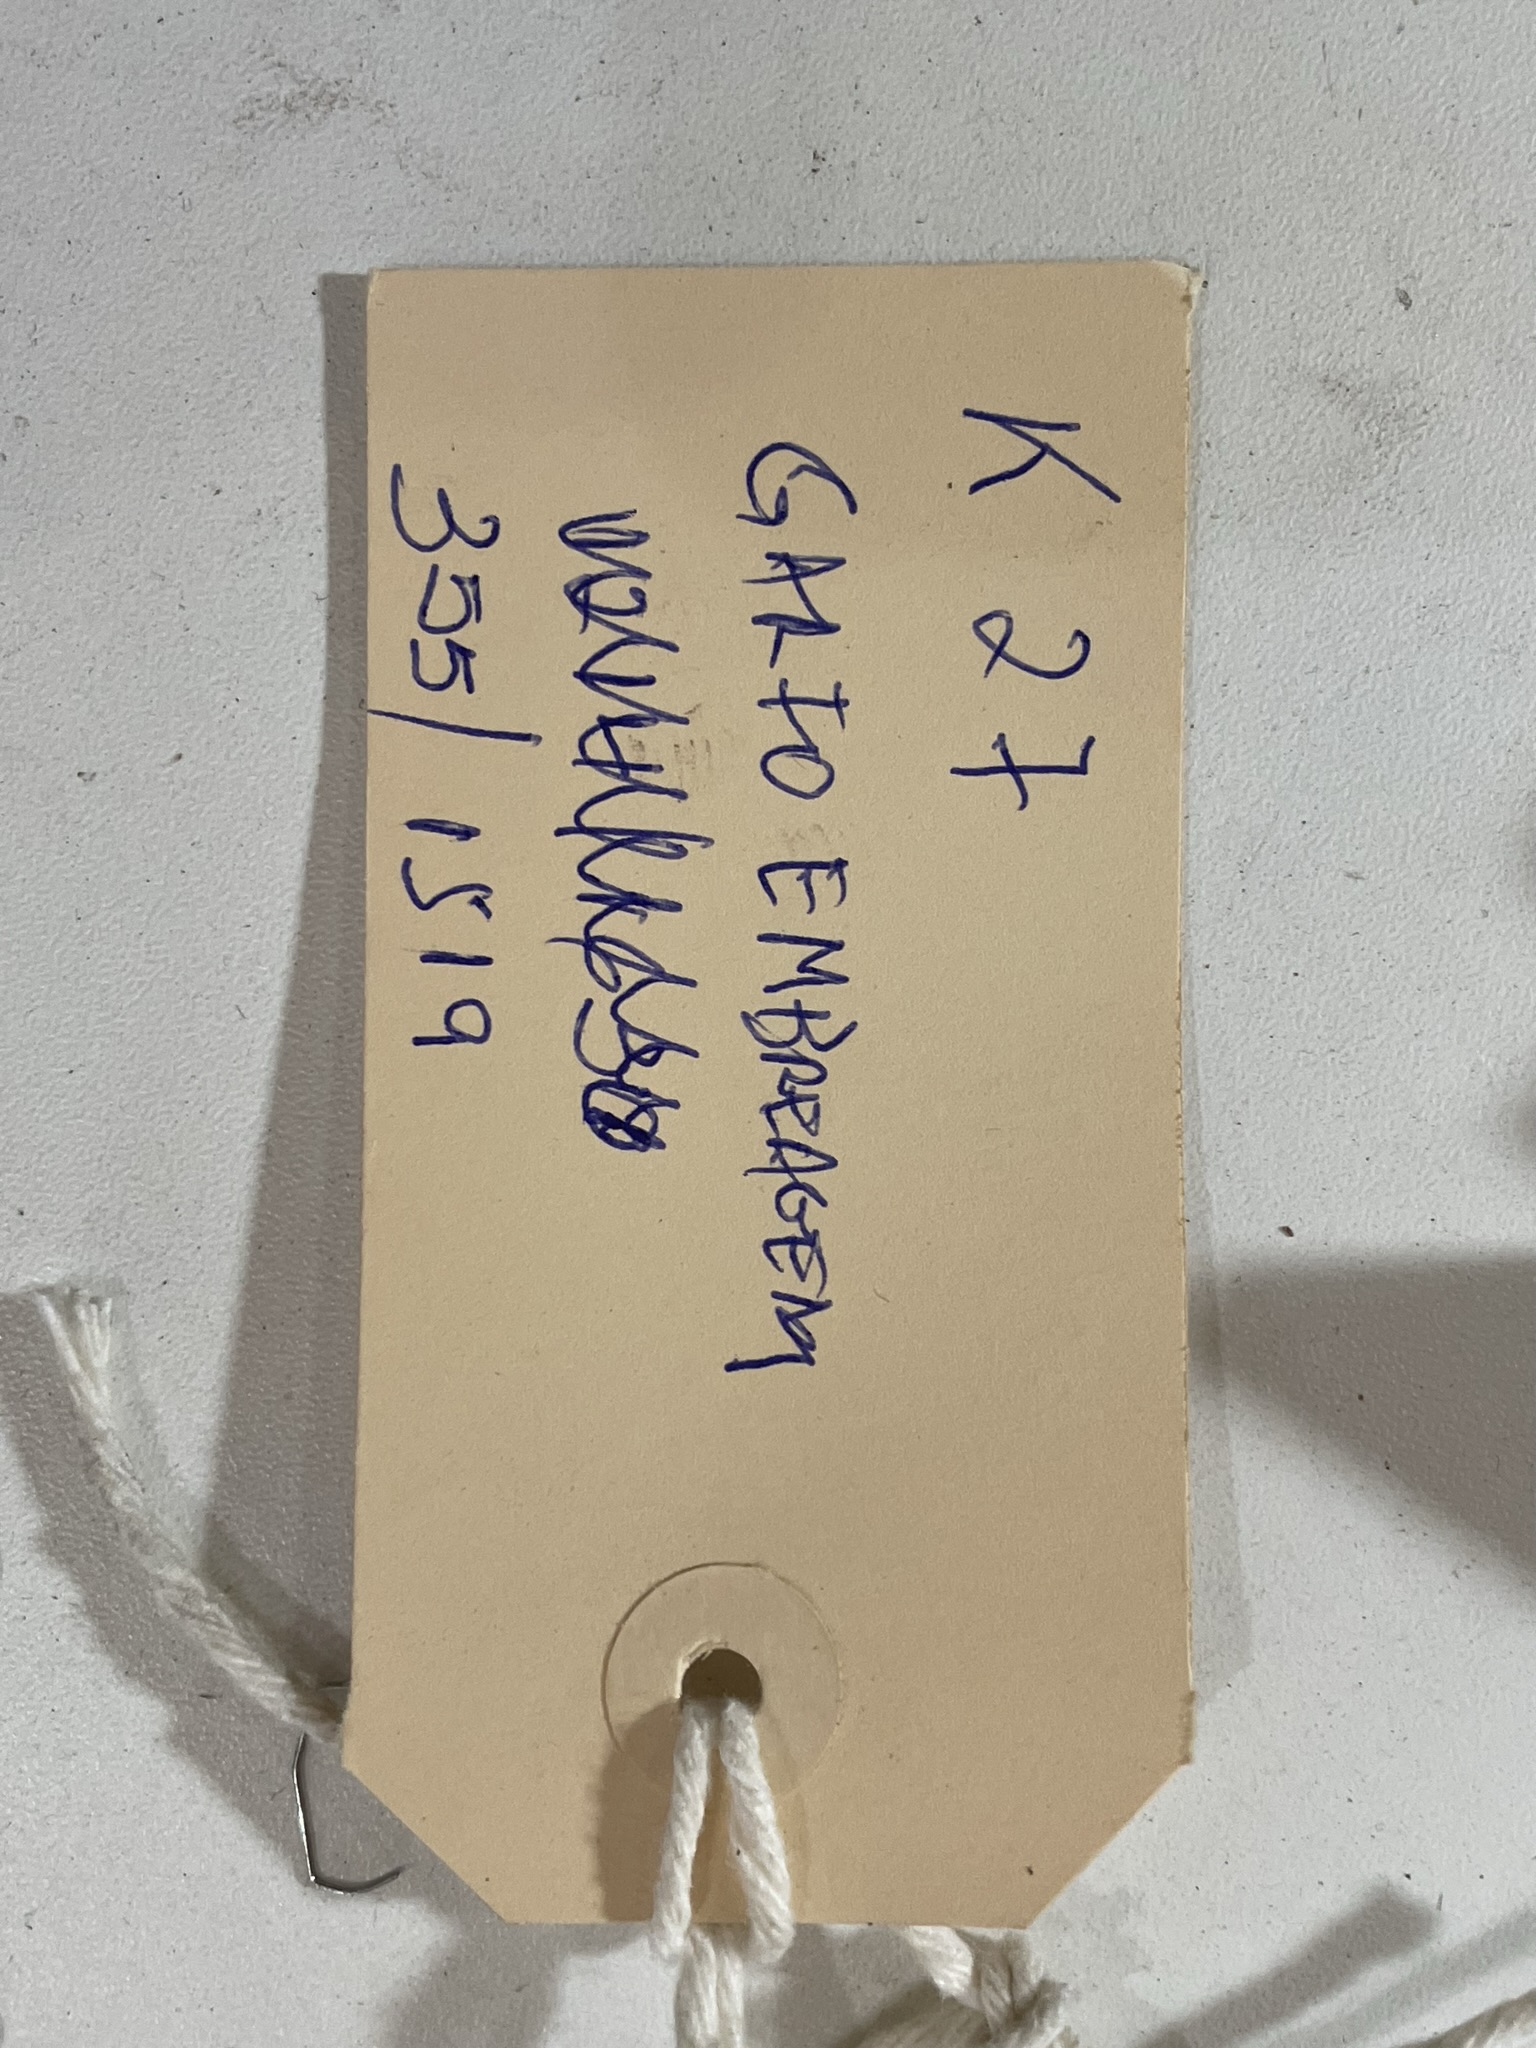 K 27
GARFO EMBRAAGEM
355/1519